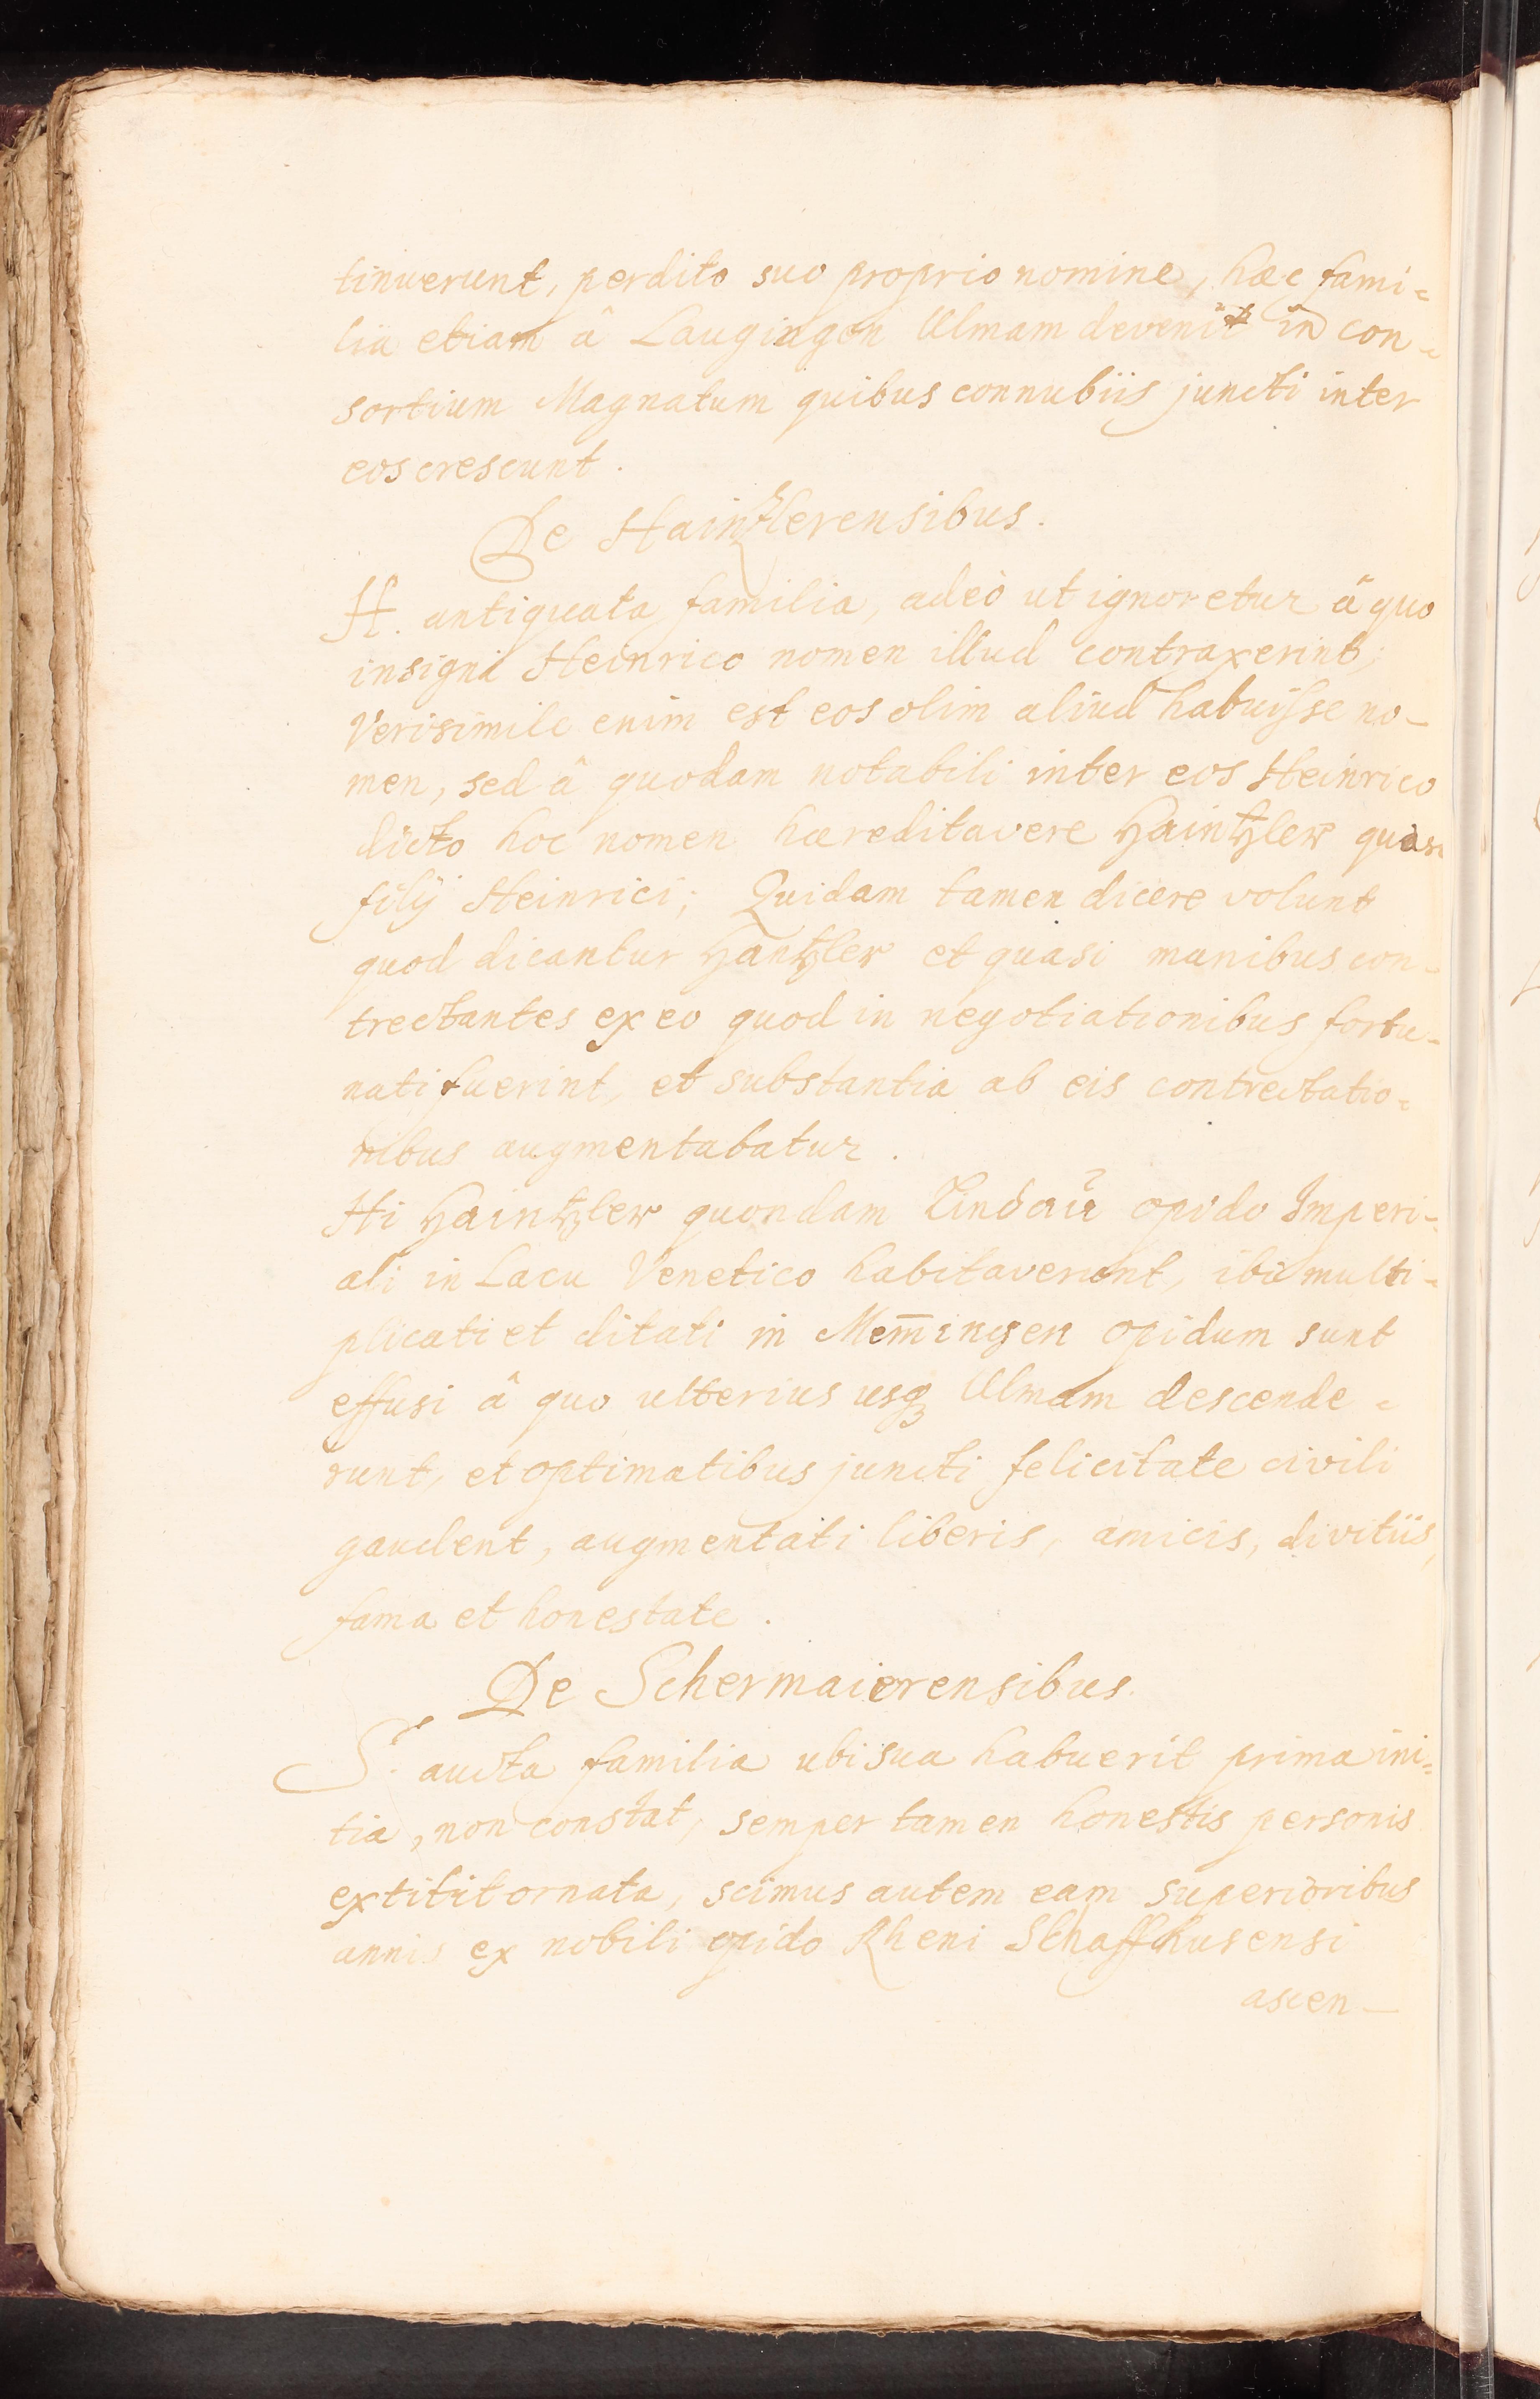 tinuerunt, perdito suo proprio nomine, haec fami=
lia etiam â Laugingen Ulmam devenit in con=
sortium Magnatum quibus connubiis juncti inter
eos crescunt.
De Haintzlerensibus.
H. antiquata familia, adeò ut ignoretur â quo
insigni Heinrico nomen illud contraxerint;
Verisimile enim est eos olim aliud habuisse no-
men, sed â quodam notabili inter eos Heinrico
dicto hoc nomen haereditavere Haintzler quasi
filij Heinrici; Quidam tamen dicere volunt
quod dicantur Hantzler et quasi manibus con=
trectantes ex eo quod in negotiationibus fortu=
nati fuerint, et substantia ab eis contrectatio=
nibus augmentabatur.
Hi Haintzler quondam Lindau opido Imperi=
ali in Lacu Venetico habitaverunt, ibi multi=
plicati et ditati in Mem̄ingen opidum sunt
effusi â quo ulterius usq3 Ulmam descende=
runt, et optimatibus juncti felicitate civili
gaudent, augmentati liberis, amicis, divitiis,
fama et honestate.
De Schermaierensibus.
S. aucta familia ubi sua habuerit prima ini=
tia, non constat, semper tamen honestis personis
extitit ornata, scimus autem eam superioribus
annis ex nobili opido Rheni Schaffhusensi
ascen-